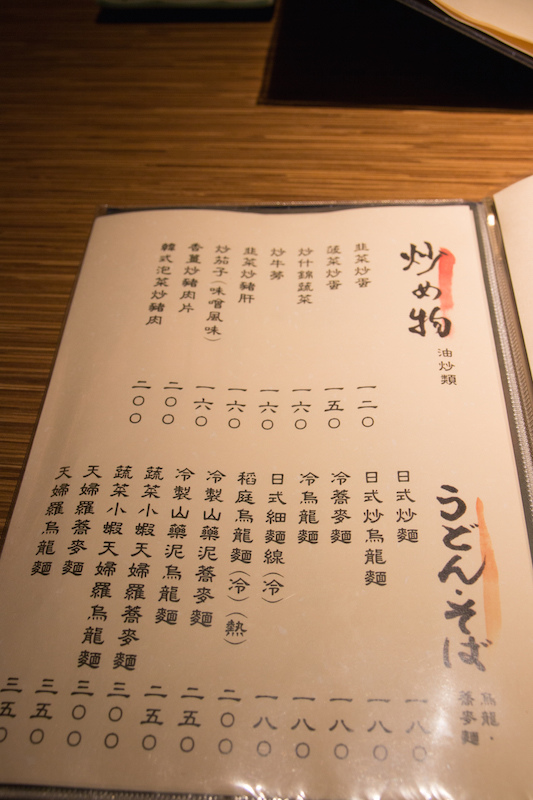 炒め物
油炒類
韭菜炒蛋 一二〇
菠菜炒蛋 一五〇
炒什錦蔬菜 一六〇
炒牛蒡 一六〇
韭菜炒豬肝 一六〇
炒茄子(味噌風味) 一六〇
香薑炒豬肉片 二〇〇
韓式泡菜炒豬肉 二〇〇
うどん・そば
烏龍・蕎麥麵
日式炒麵 一八〇
日式炒烏龍麵 一八〇
冷蕎麥麵 一八〇
冷烏龍麵 一八〇
日式細麵線(冷) 一八〇
稻庭烏龍麵(冷)(熱) 二〇〇
冷製山藥泥蕎麥麵 二五〇
冷製山藥泥烏龍麵 二五〇
蔬菜小蝦天婦羅蕎麥麵 三〇〇
蔬菜小蝦天婦羅烏龍麵 三〇〇
天婦羅蕎麥麵 三五〇
天婦羅烏龍麵 三五〇